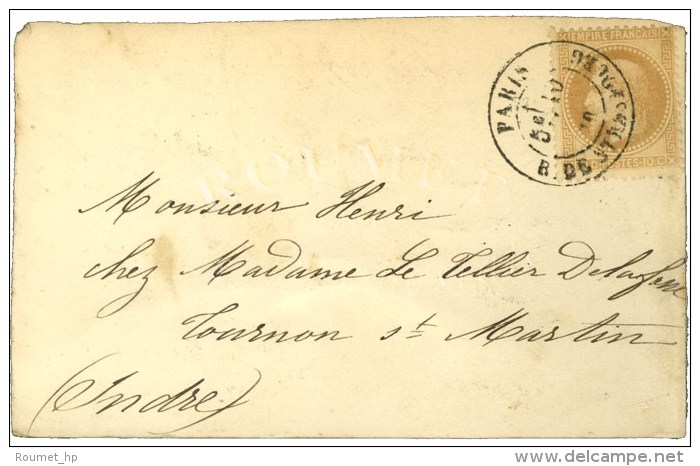 EMPIRE FRANÇAIS
PARIS
R. DE STRASBOURG
Monsieur Henri
chez Madame Le Tellier Delafosse
Tournon st Martin
(Indre)
Roumet_hp
delcampe.net